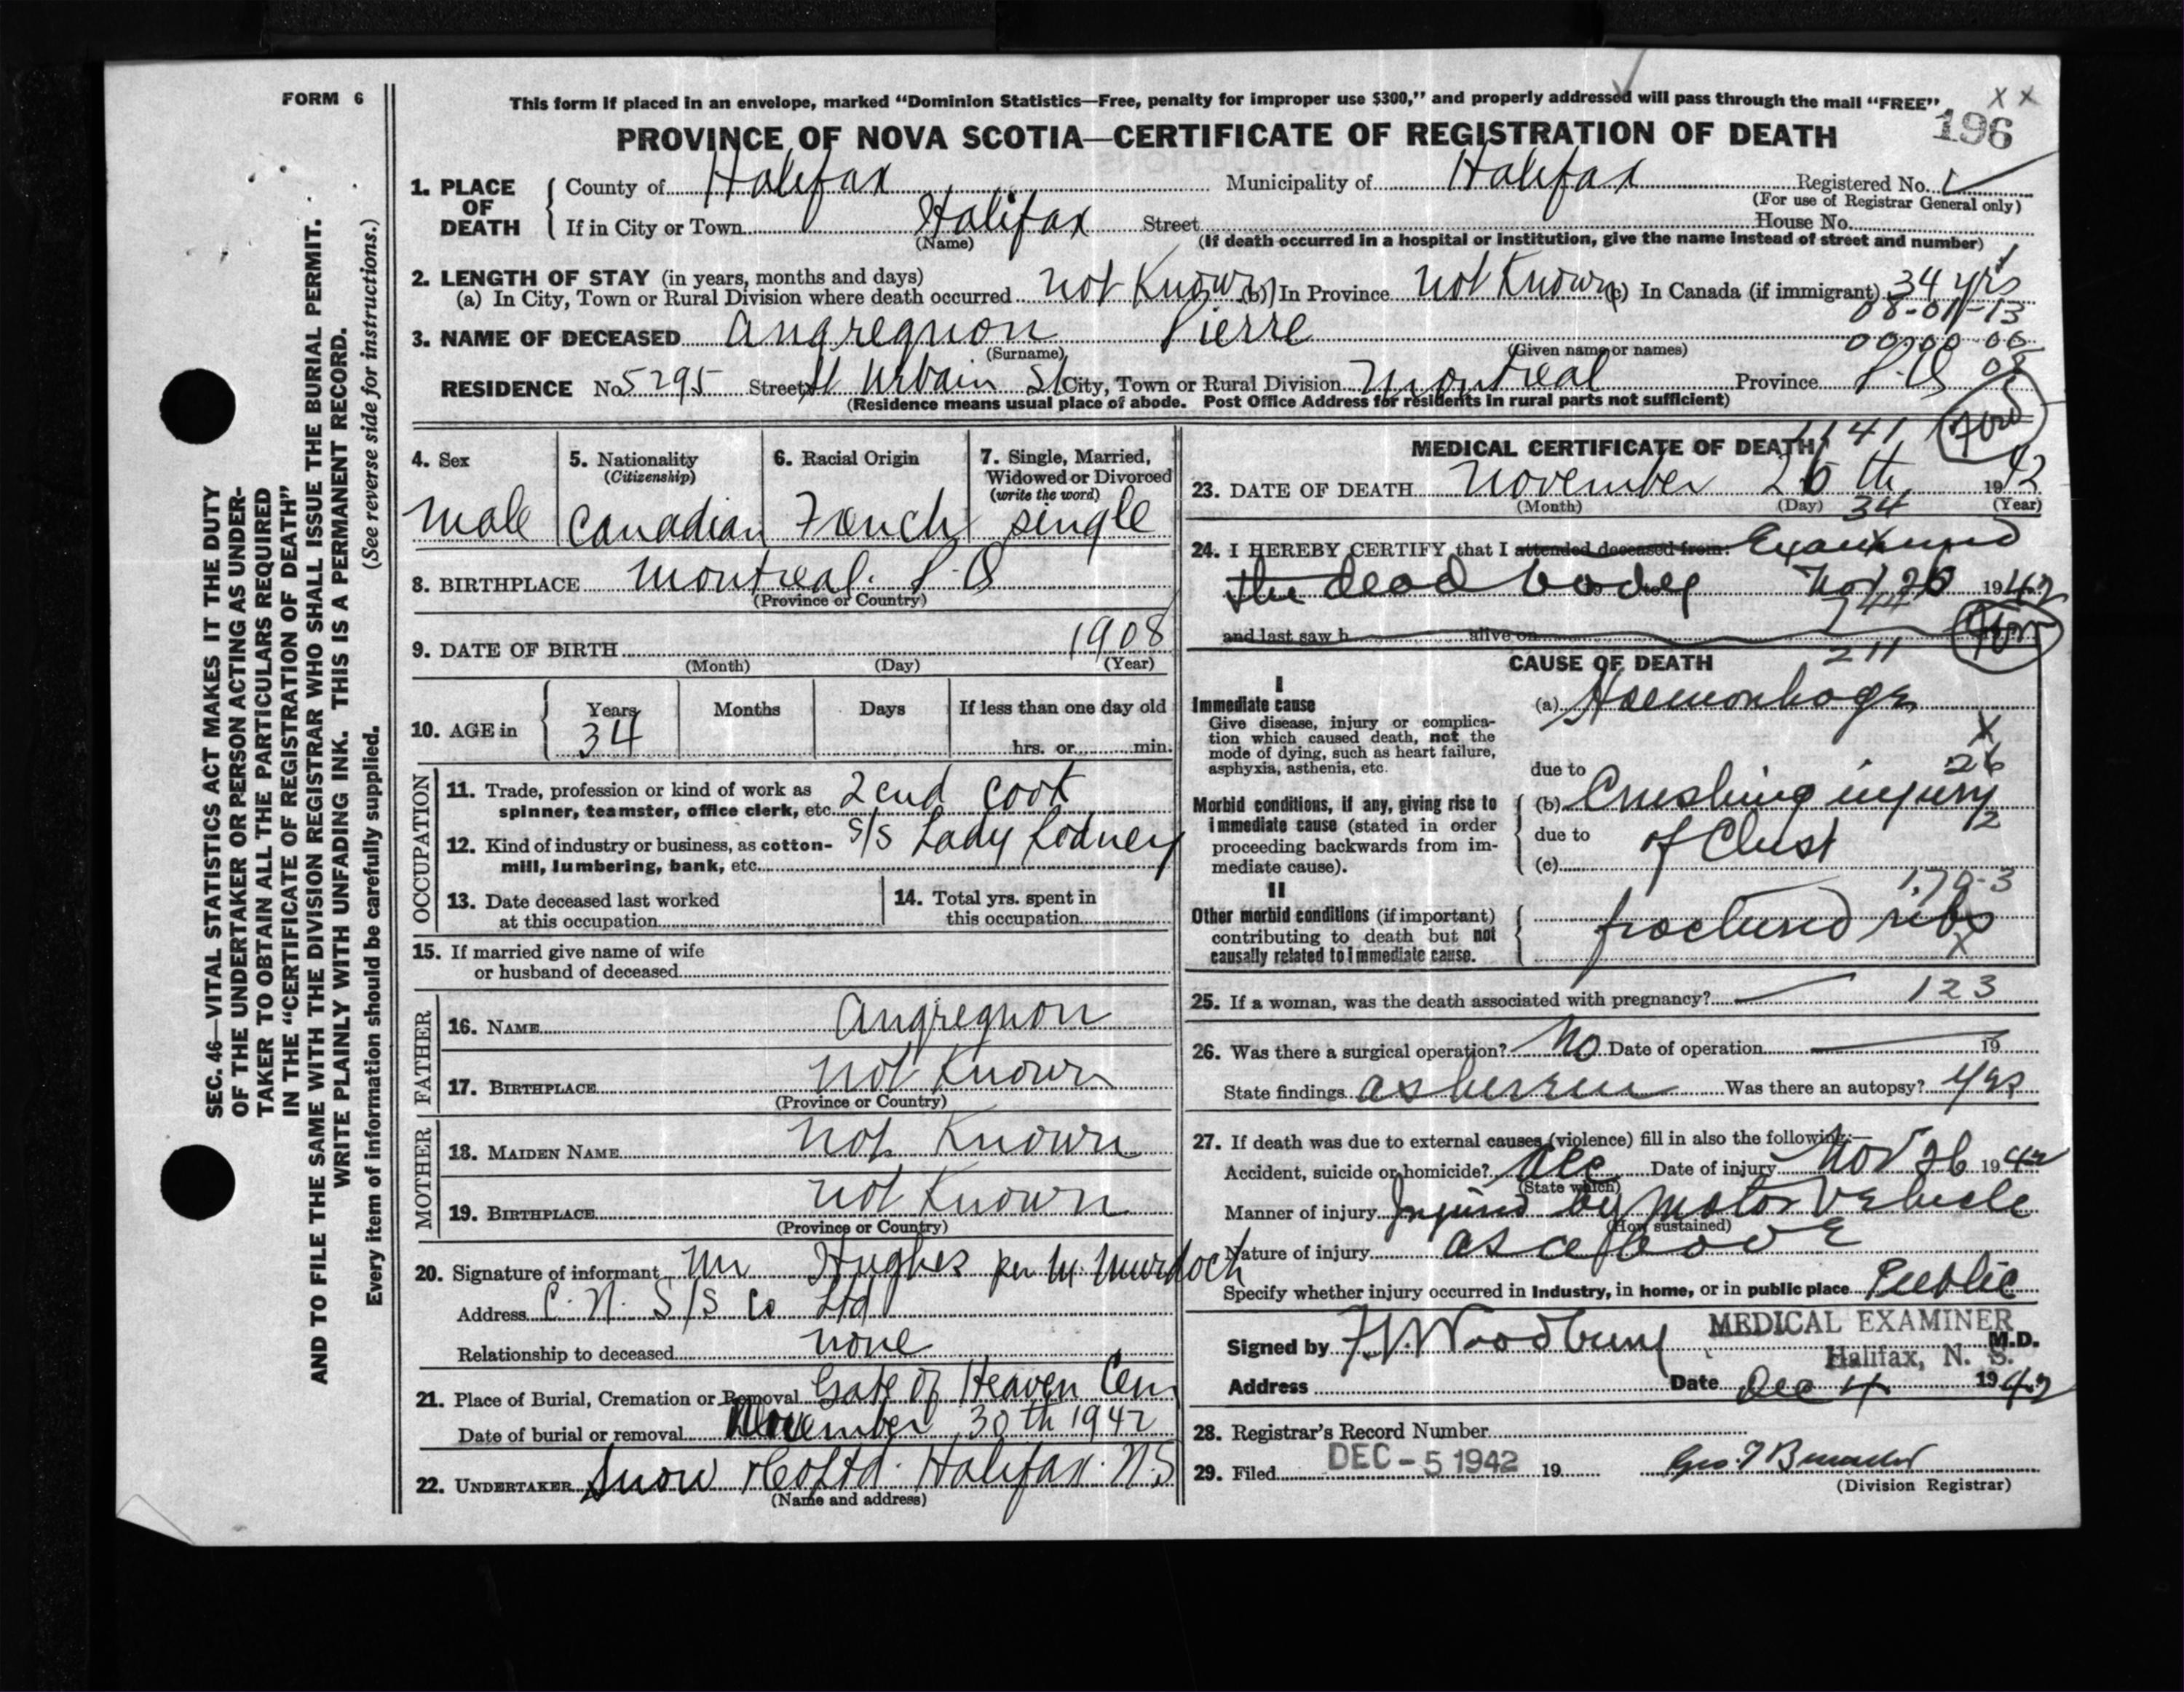 FORM 6
This form if placed in an envelope, marked "Dominion Statistics—Free, penalty for improper use $300," and properly addressed will pass through the mail "FREE"
X X
196
PROVINCE OF NOVA SCOTIA—CERTIFICATE OF REGISTRATION OF DEATH
1. PLACE OF DEATH
County of Halifax Municipality of Halifax Registered No.
(For use of Registrar General only)
If in City or Town Halifax Street House No.
(Name) (If death occurred in a hospital or institution, give the name instead of street and number)
2. LENGTH OF STAY (in years, months and days)
(a) In City, Town or Rural Division where death occurred not Known (b) In Province not Known (c) In Canada (if immigrant) 34 yrs
08-01-13
3. NAME OF DECEASED Angregnon Pierre
(Surname) (Given name or names)
00-00-00
RESIDENCE No 5295 Street St Urbain St City, Town or Rural Division Montreal Province P.Q 05
(Residence means usual place of abode. Post Office Address for residents in rural parts not sufficient)
4. Sex
Male
5. Nationality
(Citizenship)
Canadian
6. Racial Origin
French
7. Single, Married, Widowed or Divorced
(write the word)
single
8. BIRTHPLACE Montreal. P.Q
(Province or Country)
9. DATE OF BIRTH 1908
(Month) (Day) (Year)
10. AGE in
Years Months Days If less than one day old
34 hrs. or min.
OCCUPATION
11. Trade, profession or kind of work as spinner, teamster, office clerk, etc. 2cnd cook
12. Kind of industry or business, as cotton-mill, lumbering, bank, etc. S/S Lady Rodney
13. Date deceased last worked at this occupation
14. Total yrs. spent in this occupation
15. If married give name of wife or husband of deceased
FATHER
16. NAME Angregnon
17. BIRTHPLACE not Known
(Province or Country)
MOTHER
18. MAIDEN NAME not Known
19. BIRTHPLACE not Known
(Province or Country)
20. Signature of informant Mr Hughes per M. Murdoch
Address C. N. S/S Co Ltd
Relationship to deceased none
21. Place of Burial, Cremation or Removal Gate of Heaven Cem
Date of burial or removal November 30th 1942
22. UNDERTAKER Snow & Co Ltd. Halifax. N.S
(Name and address)
MEDICAL CERTIFICATE OF DEATH
1141
23. DATE OF DEATH November 26 th 1942
(Month) (Day) (Year)
34
24. I HEREBY CERTIFY that I attended deceased from: Examined
the dead body Nov 26 1942
744
and last saw h alive on
CAUSE OF DEATH
211
I
Immediate cause
Give disease, injury or complication which caused death, not the mode of dying, such as heart failure, asphyxia, asthenia, etc.
(a) Haemorrhage
X
due to 26
Morbid conditions, if any, giving rise to immediate cause (stated in order proceeding backwards from immediate cause).
(b) Crushing injury
due to of Chest 12
(c)
170-3
II
Other morbid conditions (if important) contributing to death but not causally related to immediate cause.
fractured ribs
X
25. If a woman, was the death associated with pregnancy? 123
26. Was there a surgical operation? No Date of operation 19
State findings as herein Was there an autopsy? yes
27. If death was due to external causes (violence) fill in also the following:—
Accident, suicide or homicide? Acc Date of injury Nov 26 1942
(State which)
Manner of injury Injured by motor vehicle
(How sustained)
Nature of injury as above
Specify whether injury occurred in Industry, in home, or in public place Public
Signed by Woodbury MEDICAL EXAMINER M.D.
Halifax, N. S.
Address Date Dec 4 1942
28. Registrar's Record Number
29. Filed DEC - 5 1942 19
(Division Registrar)
SEC. 46—VITAL STATISTICS ACT MAKES IT THE DUTY
OF THE UNDERTAKER OR PERSON ACTING AS UNDER-
TAKER TO OBTAIN ALL THE PARTICULARS REQUIRED
IN THE "CERTIFICATE OF REGISTRATION OF DEATH"
AND TO FILE THE SAME WITH THE DIVISION REGISTRAR WHO SHALL ISSUE THE BURIAL PERMIT.
WRITE PLAINLY WITH UNFADING INK. THIS IS A PERMANENT RECORD.
Every item of information should be carefully supplied. (See reverse side for instructions.)